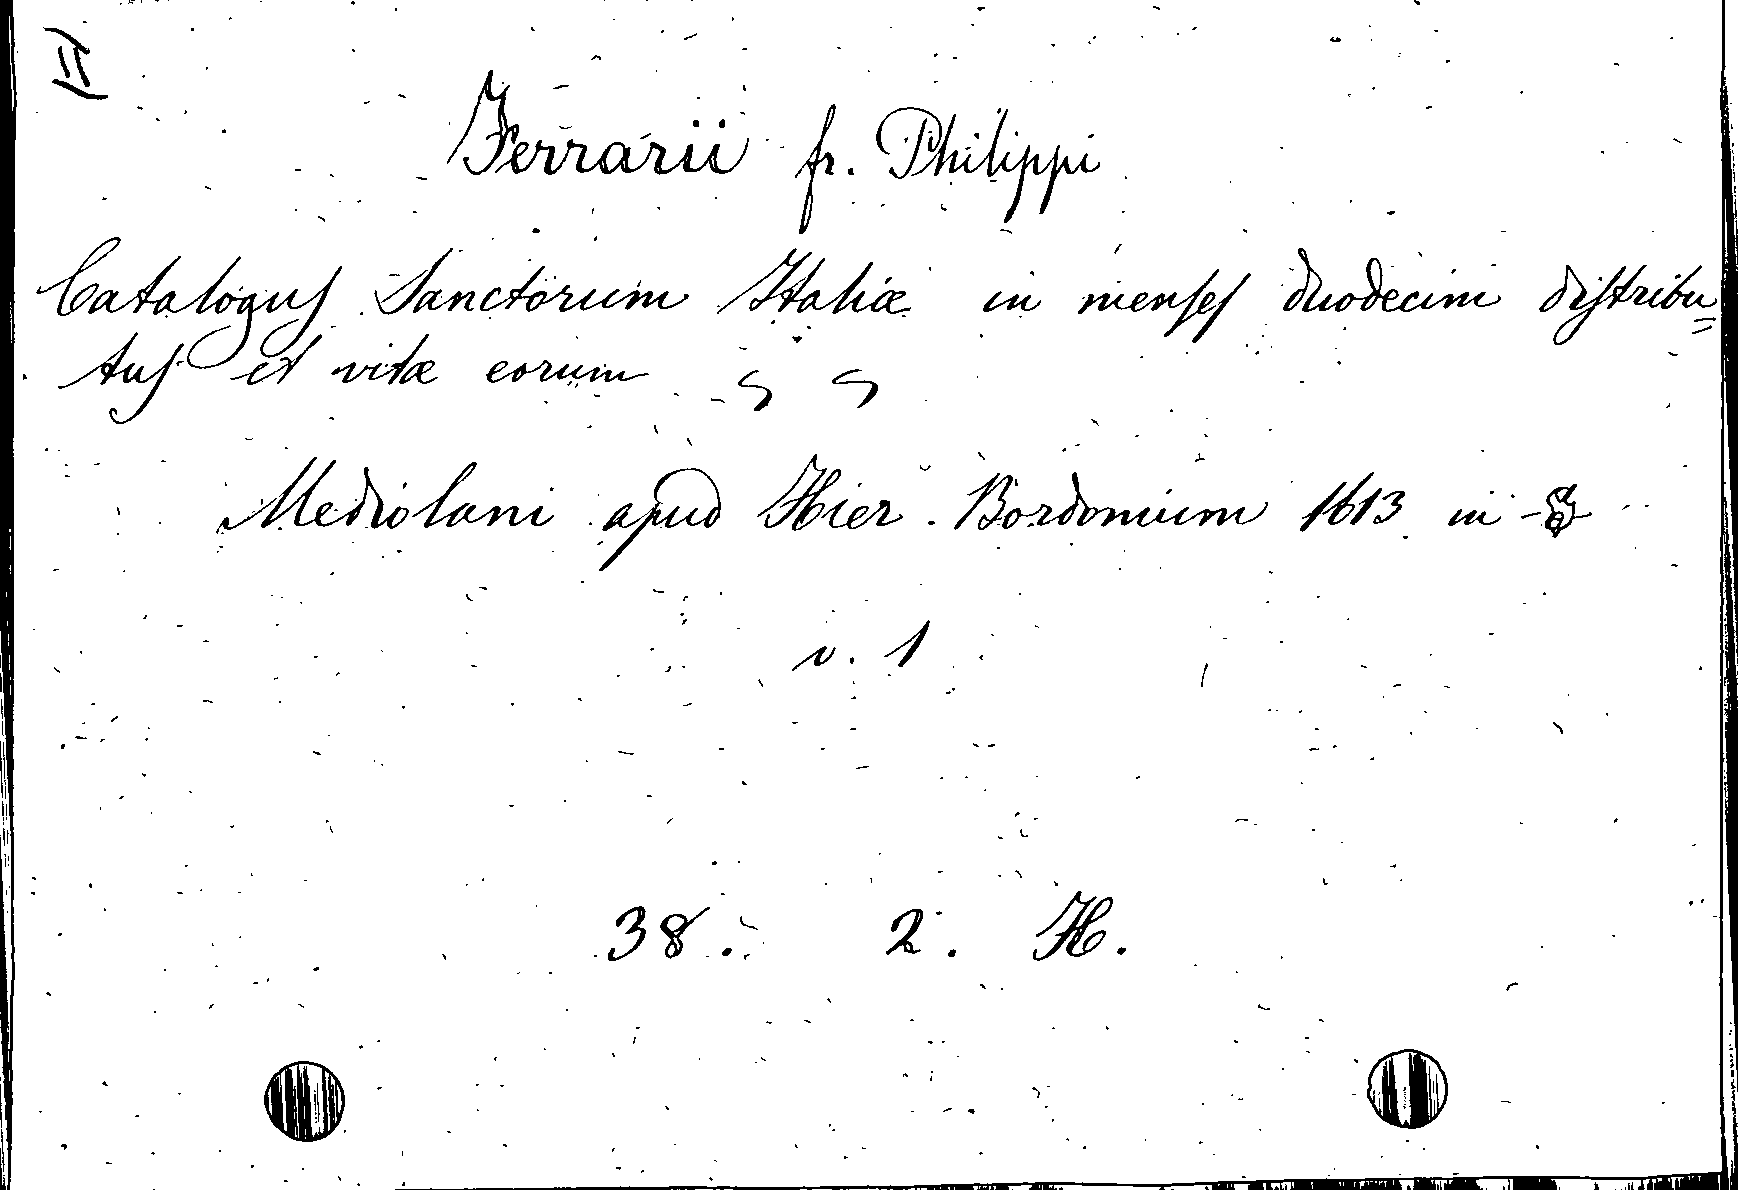 II
Ferrarii fr. Philippi
Catalogus Sanctorum Italiæ in menses duodecim distribu=
tus et vitæ eorum
Mediolani apud Hier. Bordonium 1613 in
v. 1
38. 2. H.